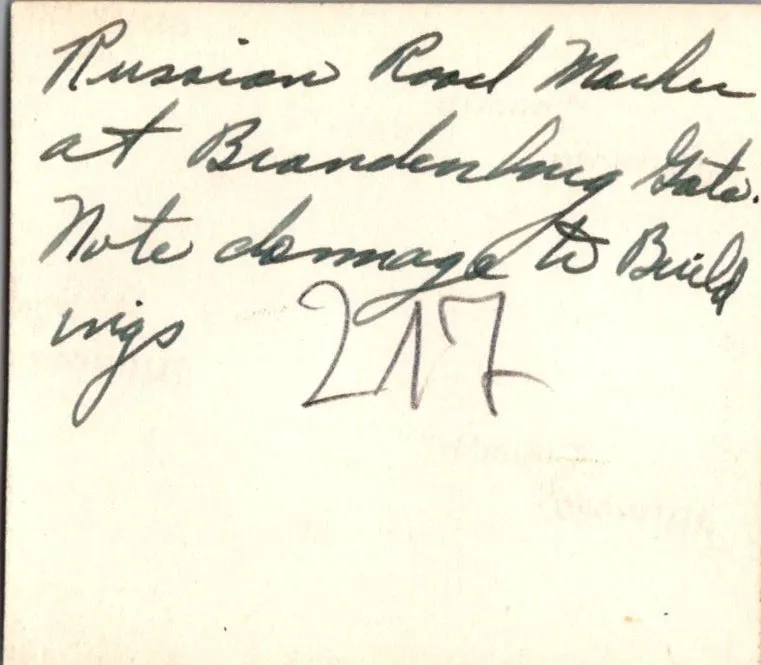 Russian Road Marker
at Brandenburg Gate.
Note damage to Build
ings
217